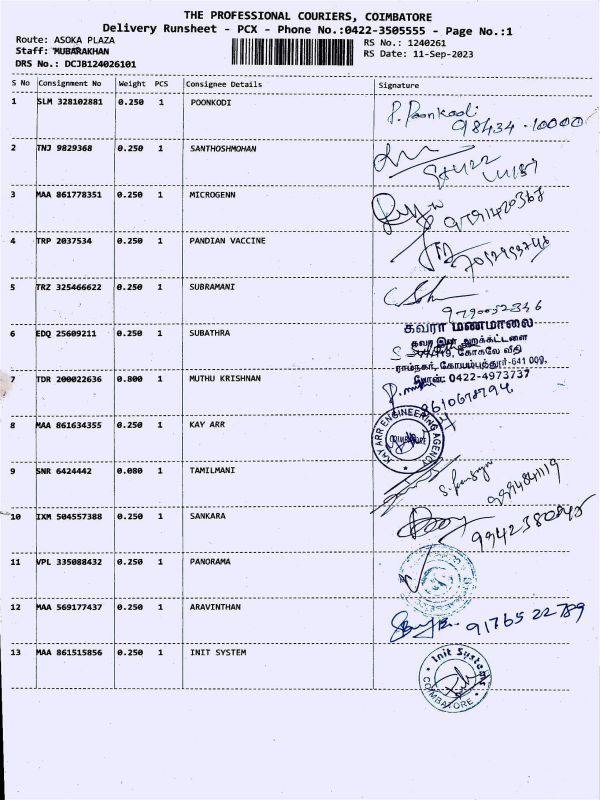 THE PROFESSIONAL COURIERS, COIMBATORE
Delivery Runsheet - PCX - Phone No.:0422-3505555 - Page No.:1
Route: ASOKA PLAZA
RS No.: 1240261
Staff: MUBARAKHAN
RS Date: 11-Sep-2023
DRS No.: DCJB124026101
S No Consignment No Weight PCS Consignee Details Signature
1 SLM 328102881 0.250 1 POONKODI P. Poonkodi
98434-10000
2 TNJ 9829368 0.250 1 SANTHOSHMOHAN
3 MAA 861778351 0.250 1 MICROGENN 9791420368
4 TRP 2037534 0.250 1 PANDIAN VACCINE
5 TRZ 325466622 0.250 1 SUBRAMANI
9790052346
கவரா மணமாலை
6 EDQ 25609211 0.250 1 SUBATHRA
கோகலே வீதி
ராம்நகர், கோயம்புத்தூர்-641 009.
7 TDR 200022636 0.800 1 MUTHU KRISHNAN போன்: 0422-4973737
8 MAA 861634355 0.250 1 KAY ARR KAY ARR ENGINEERING AGENCY
COIMBATORE
9 SNR 6424442 0.080 1 TAMILMANI 9994841119
10 IXM 504557388 0.250 1 SANKARA
11 VPL 335088432 0.250 1 PANORAMA
12 MAA 569177437 0.250 1 ARAVINTHAN 9176522789
13 MAA 861515856 0.250 1 INIT SYSTEM Init Systems
COIMBATORE